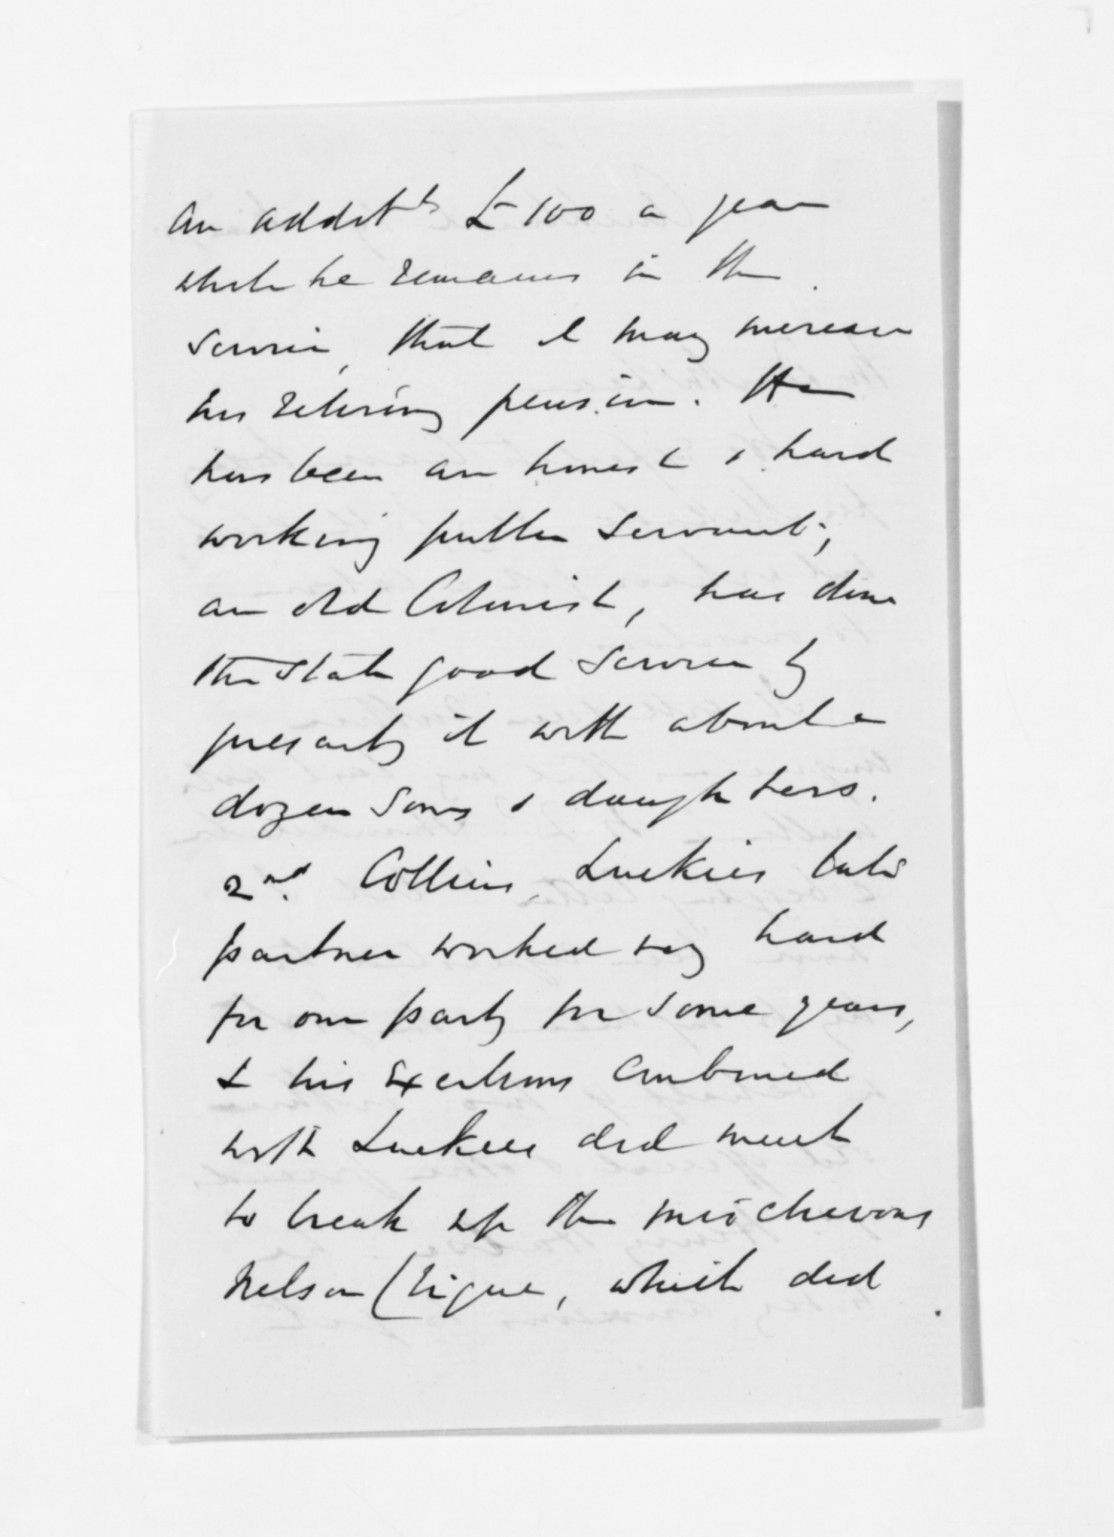 an addit^l £100 a year
while he remains in the
Service, that it may increase
his retiring pension. He
has been an honest & hard
working public servant;
an old Colonist, has done
the State good service by
presentg it with about a
dozen sons & daughters.
2nd. Collins, Luckies late
partner worked very hard
for our party for some years,
& his exertions combined
with Luckies did much
to break up the mischevous
Nelson Clique, which did